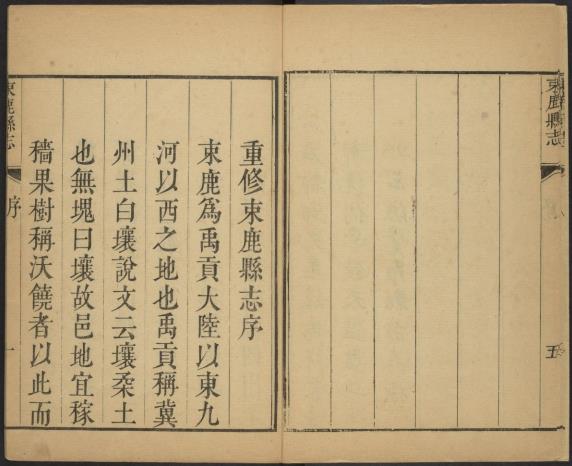 東鹿縣志
五
重修束鹿縣志序
束鹿爲禹貢大陸以東九
河以西之地也禹貢稱冀
州土白壤說文云壤柔土
也無塊曰壤故邑地宜稼
穡果樹稱沃饒者以此而
東鹿縣志
序
一